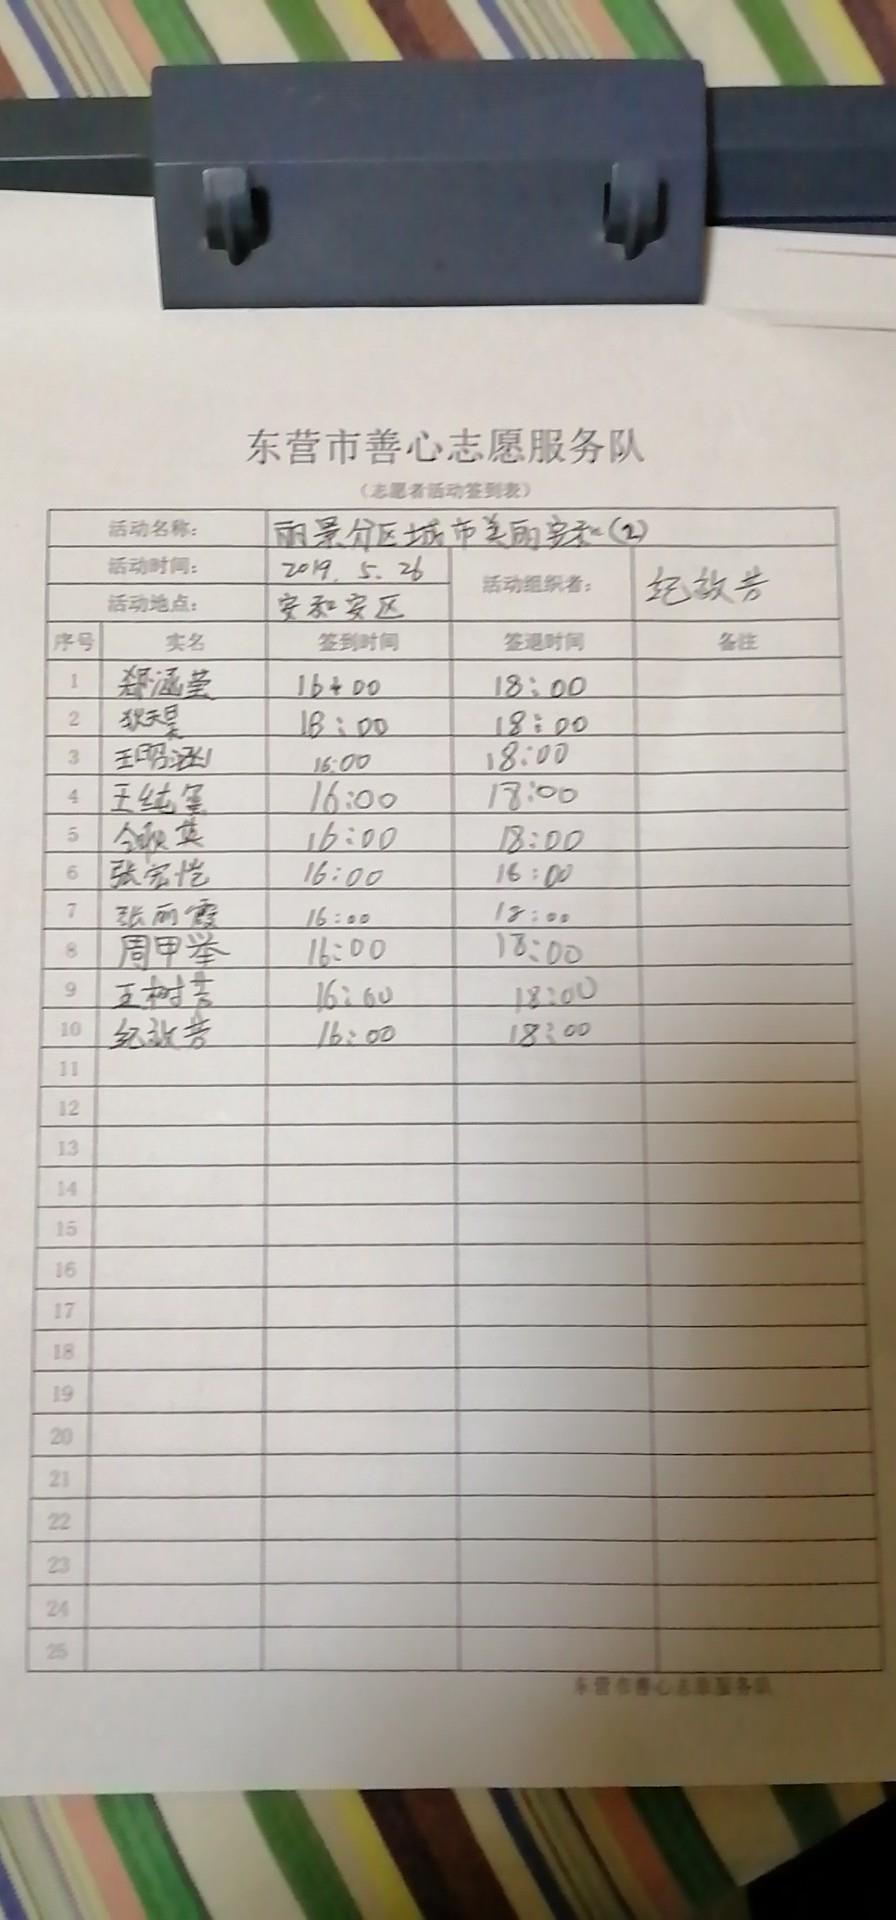 东营市善心志愿服务队
（志愿者活动签到表）
活动名称： 丽景分区城市美丽安和（2）
活动时间： 2019. 5. 26 活动组织者： 纪效芳
活动地点： 安和安区
序号 实名 签到时间 签退时间 备注
1 郑涵莹 16:00 18:00
2 狄天昊 18:00 18:00
3 王明涵 16:00 18:00
4 王纯 16:00 18:00
5 英 16:00 18:00
6 张宏恺 16:00 16:00
7 张丽霞 16:00 18:00
8 周甲举 16:00 18:00
9 王树芳 16:00 18:00
10 纪效芳 16:00 18:00
11
12
13
14
15
16
17
18
19
20
21
22
23
24
25
东营市善心志愿服务队